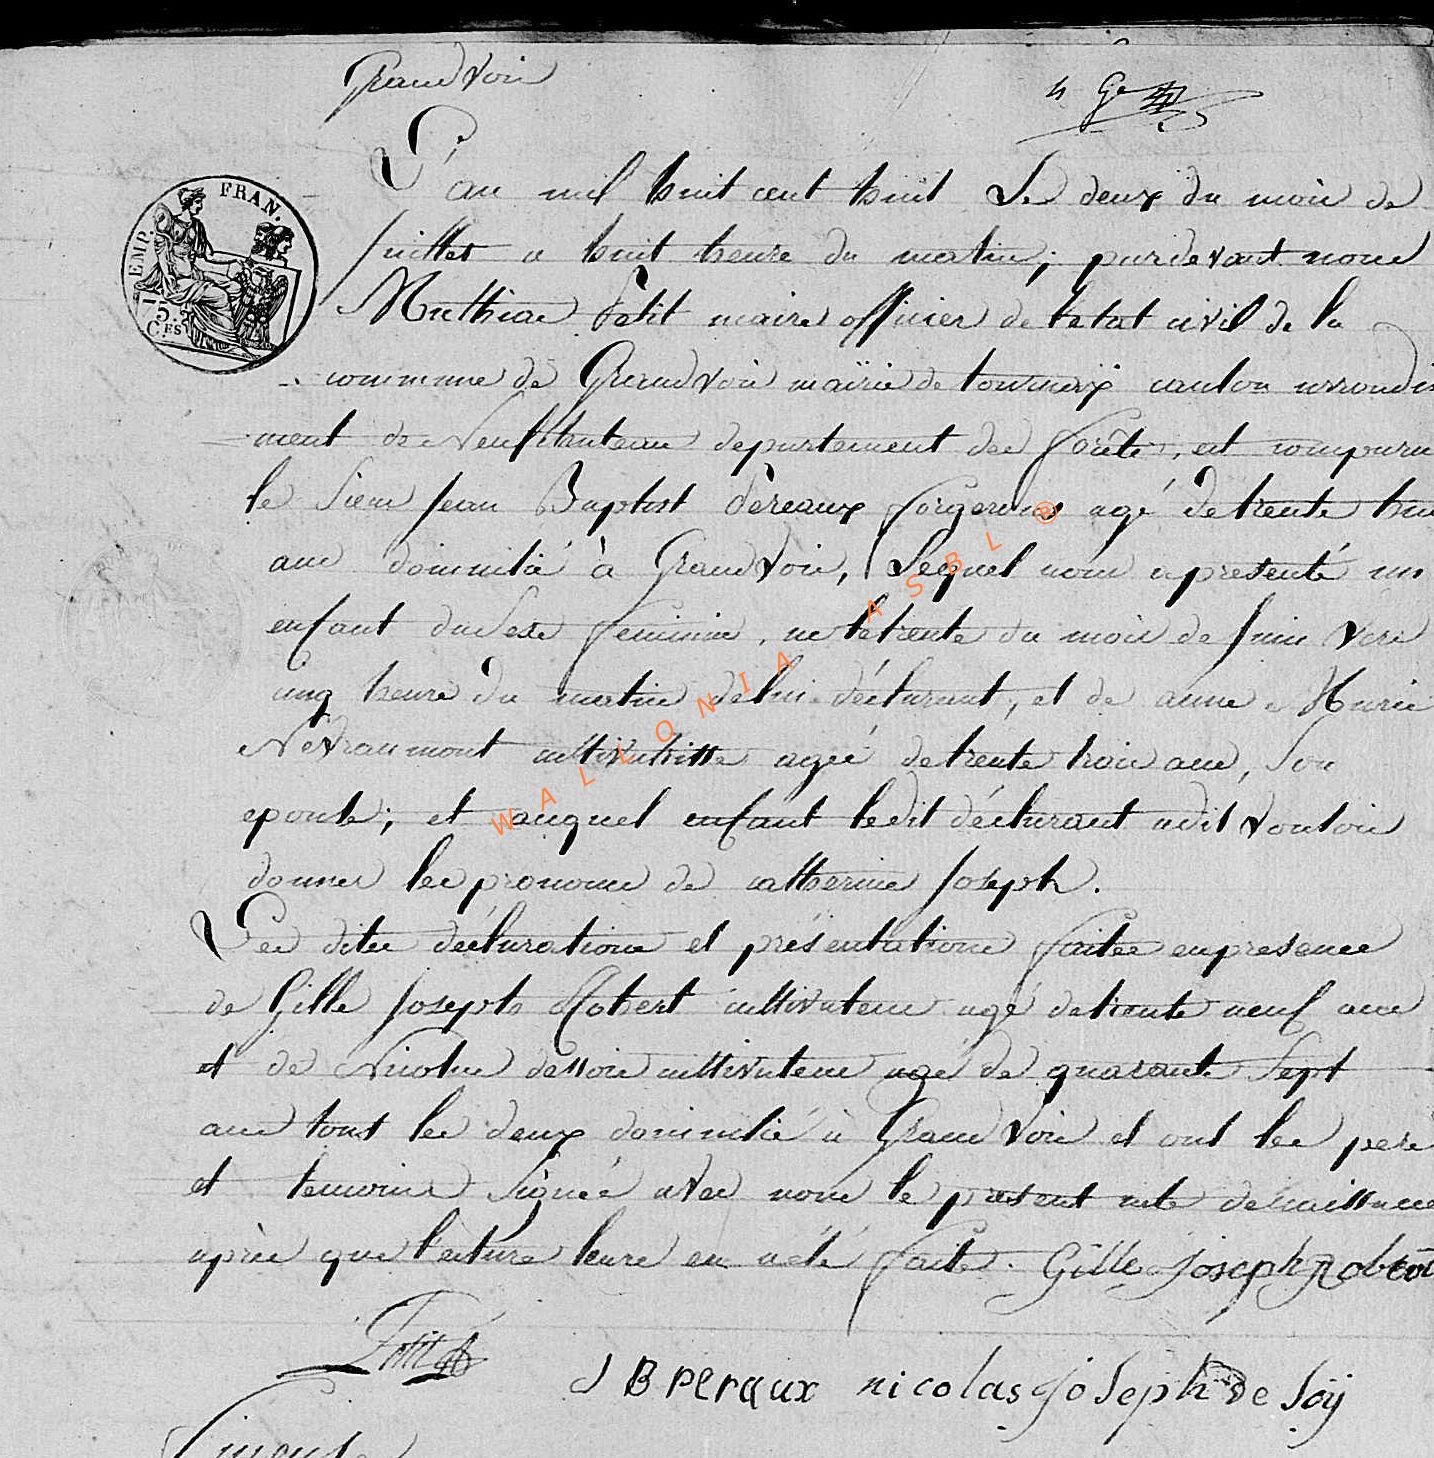 Grandvoir
EMP. FRAN.
75.
C.ES
L'an mil huit cent huit Le deux du mois de
juillet a huit heure du matin; pardevant nous
Mathias Petit maire officier de letat civil de la
commune de Grandvoir mairie de tournay canton arrondis
ment de Neufchateau departement des forêts, est comparu
le sieur jean Baptist Pèreaux forgerons agé de trente huit
ans domicilié à Grandvoir, Lequel nous a presenté un
enfant du Sexe feminin, ne le trente du mois de juin vers
cinq heure du matin de lui déclarant, et de anne Marie
Névraumont cultivatrisse agée de trente trois ans, Son
epouse; et auquel enfant ledit déclarant a dit vouloir
donner les pronoms de catherine joseph.
Les dites déclarations et présentations faites en presence
de Gille joseph Robert cultivateur agé de trente neuf ans
et de Nicolas dessoie cultivateur agé de quarante Sept
ans tous les deux domicilié à Grandvoir et ont les pere
et temoins signée avec nous le present acte de naissance
après que l'ecture leure en a été faite. Gille joseph Robert
Petit
J B Peraux nicolas joseph de Soÿ
WALLONIA ASBL ®